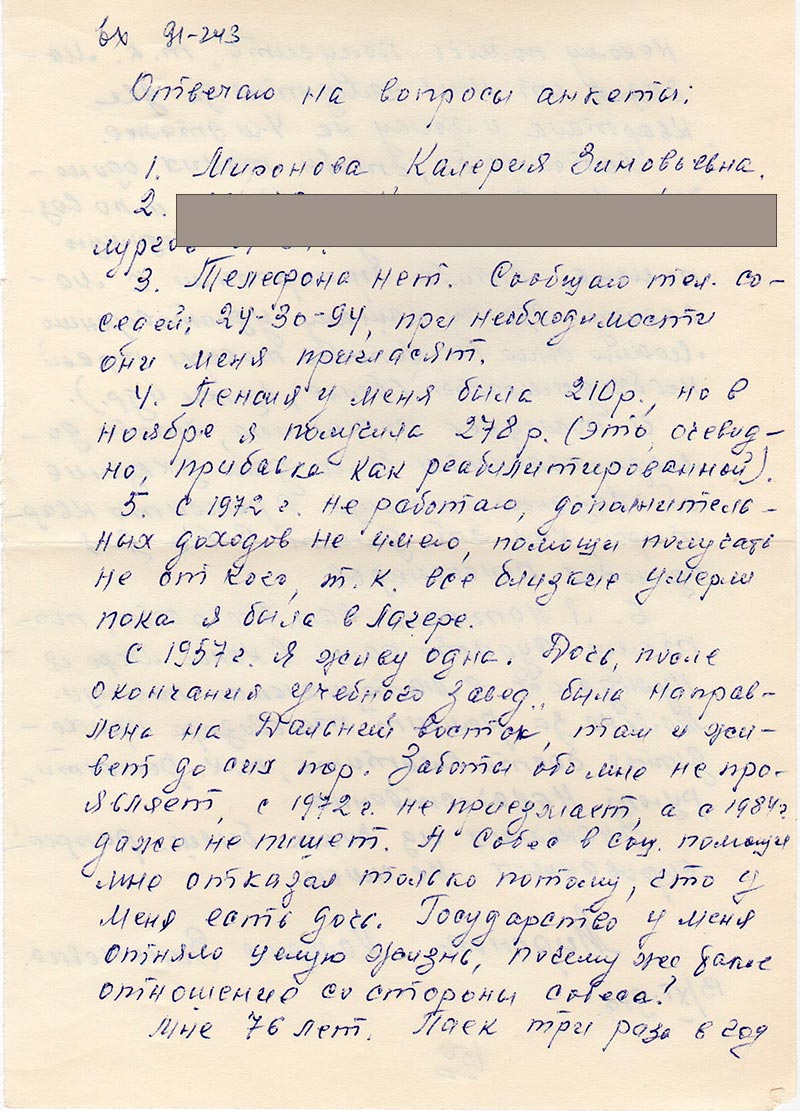 вх 91-243
Отвечаю на вопросы анкеты:
1. Миронова Калерия Зиновьевна.
2.
лургов
3. Телефона нет. Сообщаю тел. со-
седей: 24-30-94, при необходимости
они меня пригласят.
4. Пенсия у меня была 210 р., но в
ноябре я получила 278 р. (это, очевид-
но, прибавка как реабилитированной).
5. С 1972 г. не работаю, дополнитель-
ных доходов не имею, помощи получать
не от кого, т.к. все близкие умерли
пока я была в лагере.
С 1957 г. я живу одна. Дочь, после
окончания учебного завод. была направ-
лена на Дальний восток, там и жи-
вет до сих пор. Заботы обо мне не про-
являет, с 1972 г. не приезжает, а с 1984 г.
даже не пишет. А Собес в соц. помощи
мне отказал только потому, что у
меня есть дочь. Государство у меня
отняло целую жизнь, почему же такое
отношение со стороны собеса?
Мне 76 лет. Паек три раза в год